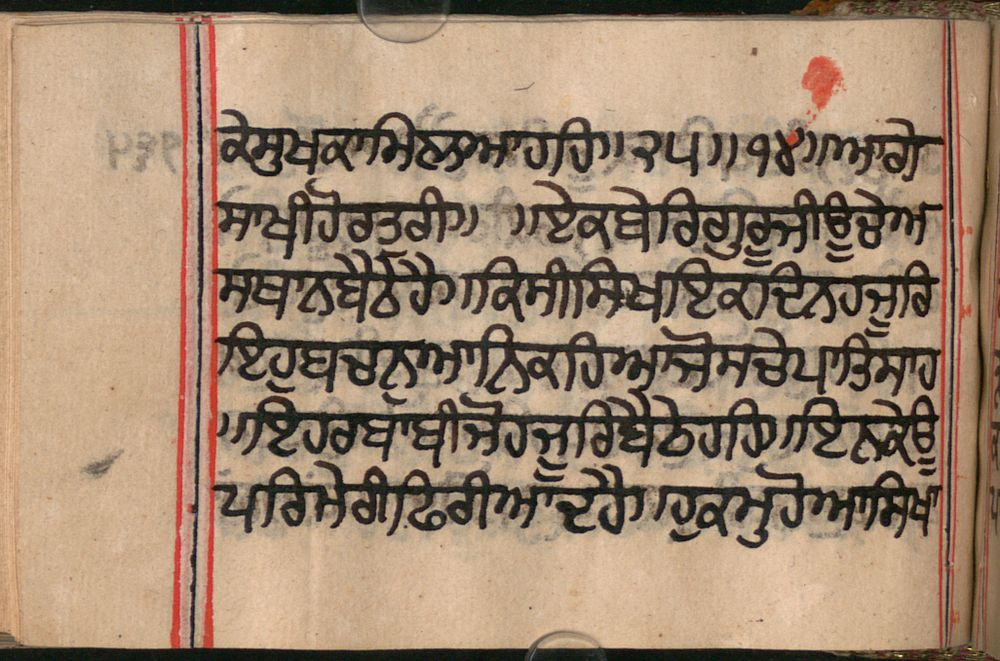 ਕੇਸੁਖਕਾਮਿਲਨਾਆਹਹਿ॥੨੫॥੧੪॥ਆਗੇ
ਸਾਖੀਹੋਰਤੁਰੀ॥ ॥ਏਕਬੇਰਿਗੁਰੂਜੀਊਚੇਅ
ਸਥਾਨਬੈਠੇਹੈ॥ਕਿਸੀਸਿਖਇਕਦਿਨਹਜੂਰਿ
ਇਹੁਬਚਨੁਆਨਿਕਹਿਆਜੋਸਚੇਪਾਤਿਸਾਹ
॥ਇਹਰਬਾਬੀਜੋਹਜੂਰਿਬੈਠੇਹਹਿ॥ਇਨਕੇਊ
ਪਰਿਮੇਰੀਢਿਰੀਆਂਦੇਹੈ॥ਹੁਕਮੁਹੋਆਸਿਖਾ